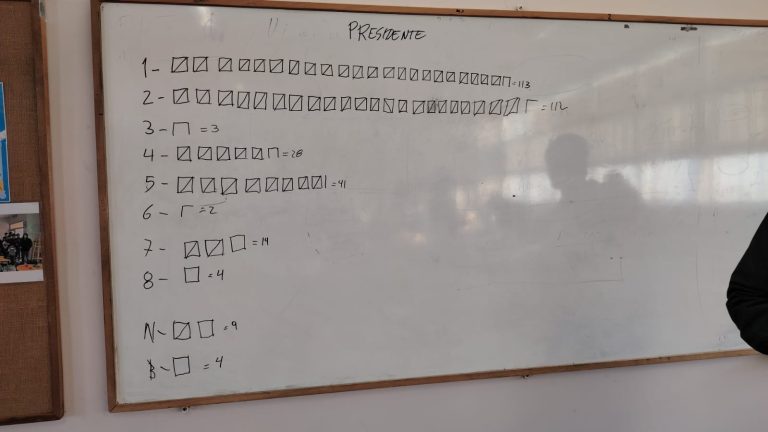 PRESIDENTE
1- =113
2- =112
3- =3
4- =28
5- =41
6- =2
7- =14
8- =4
N- =9
B- =4